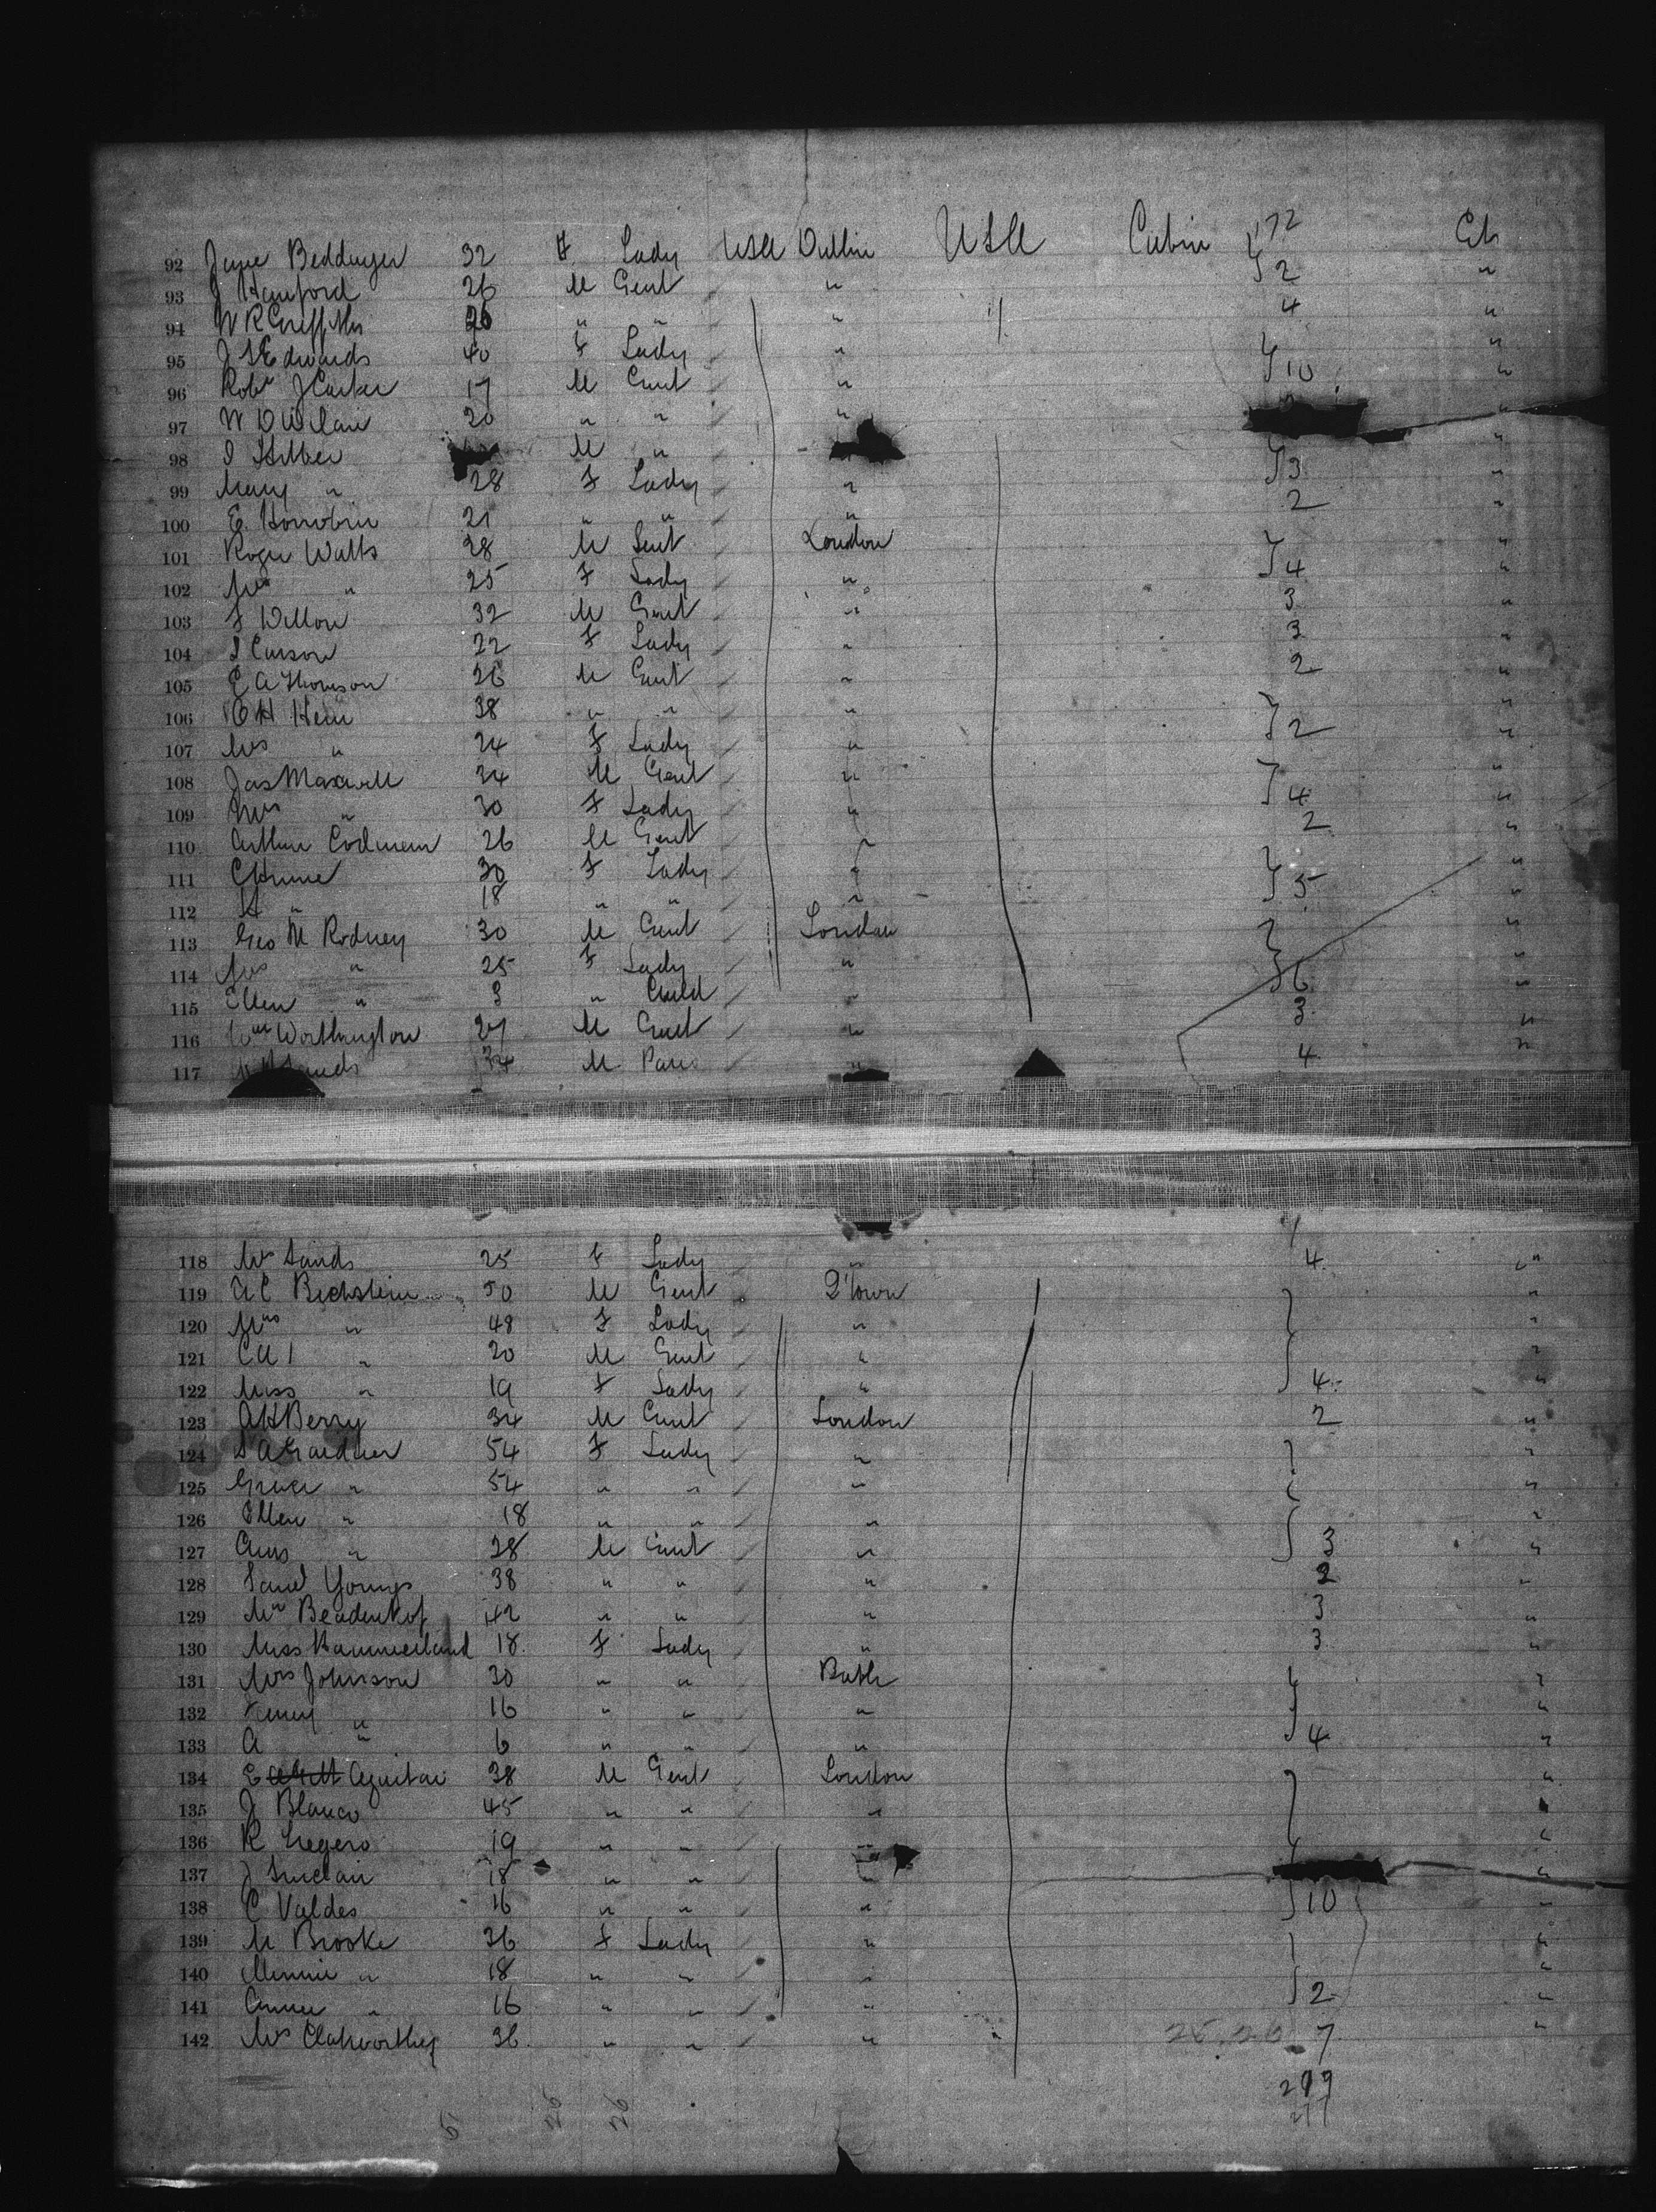 172
92 Jayne Beddmyer 32 F Lady USA Dublin USA Cabin Ch
93 J Hanford 26 M Gent " 2 "
94 W R Griffiths 26 " " " 4 "
95 J S Edwards 40 F Lady " "
96 Robt J Carker 17 M Gent " 10 "
97 W D 20 " " "
98 M " "
99 Mary " 28 F Lady " 3 "
100 E. 21 " " " 2 "
101 Roger Watts 28 M Gent London "
102 Mrs " 25 F Lady " 4 "
103 F Willon 32 M Gent " 3 "
104 I Carson 22 F Lady " 3 "
105 E A Thomson 26 M Gent " 2 "
106 38 " " " "
107 Mrs " 24 F Lady " 2 "
108 Jas Maxwell 34 M Gent " "
109 Mrs " 30 F Lady " 4 "
110 Arthur Codman 26 M Gent " 2 "
111 C Hume 30 F Lady " "
112 H " 18 " " " 5 "
113 Geo M Rodney 30 M Gent London "
114 Mrs " 25 F Lady " "
115 Ellen " 3 " Child " 6
116 Wm Worthington 27 M Gent " 3 "
117 Sands 34 M " 4 "
118 Mrs Sands 25 F Lady " 4 "
119 A C Bechstein 50 M Gent Q'town "
120 Mrs " 48 F Lady " "
121 " 20 M Gent " "
122 Miss " 19 F Lady " 4 "
123 A H Berry 34 M Gent London 2 "
124 S A Gardner 54 F Lady " "
125 Grace " 54 " " " "
126 Ellen " 18 " " " "
127 " 28 M Gent " 3 "
128 Saml Youngs 38 " " " 2 "
129 Mr 42 " " " 3 "
130 Miss 18 F Lady " 3 "
131 Mrs Johnson 30 " " Bath "
132 " 16 " " " "
133 A " 6 " " " 4 "
134 E 38 M Gent London "
135 J Blanco 45 " " "
136 R 19 " " " "
137 J Sinclair 18 " " " "
138 C Valdes 16 " " " 10 "
139 M Brooke 36 F Lady " "
140 Minnie " 18 " " " "
141 " 16 " " " 2 "
142 Mrs Clatworthy 36 " " " 7 "
299